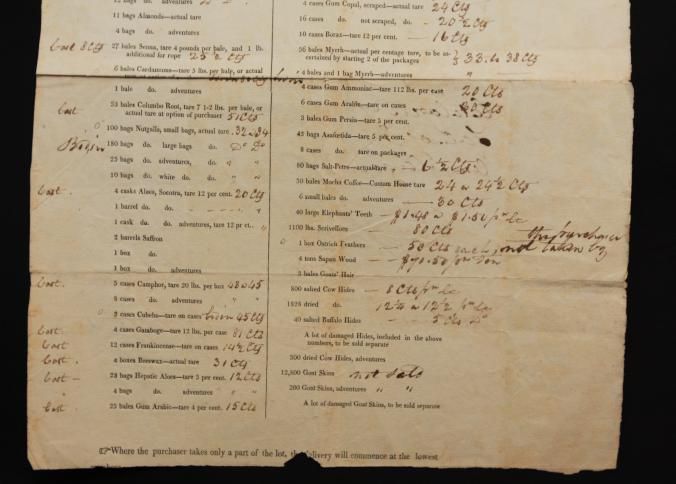 bags do. adventures
11 bags Almonds—actual tare
4 bags do. adventures
Cost 8 Cts 27 bales Senna, tare 4 pounds per bale, and 1 lb.
additional for rope 25 ½ Cts
6 bales Cardamums—tare 5 lbs. per bale, or actual
1 bale do. adventures
Cost 53 bales Columbo Root, tare 7 1-2 lbs. per bale, or
actual tare at option of purchaser 51 Cts
100 bags Nutgalls, small bags, actual tare. 32 a 34
Begin 180 bags do. large bags do. Do Do
25 bags do. adventures, do. " "
10 bags do. white do. do. "
Cost. 4 casks Aloes, Socotra, tare 12 per cent. 20 Cts
1 barrel do. do.
1 cask do. do. adventures, tare 12 pr ct.. "
2 barrels Saffron
1 box do.
1 box do. adventures
Cost. 5 cases Camphor, tare 20 lbs. per box 48 a 45
8 cases do. adventures " "
2 cases Cubebs—tare on cases 45 Cts
Cost. 4 cases Gamboge—tare 12 lbs. per case 81 Cts
Cost. 12 cases Frankincense—tare on cases 14 ½ Cts
Cost. 4 boxes Beeswax—actual tare 31 Cts
Cost — 28 bags Hepatic Aloes—tare 3 per cent. 12 Cts
4 bags do. do. adventures " "
Cost 25 bales Gum Arabic—tare 4 per cent. 15 Cts
4 cases Gum Copal, scraped—actual tare 24 Cts
16 cases do. not scraped, do. - 20 ½ Cts
10 cases Borax—tare 12 per cent. - 16 Cts
56 bales Myrrh—actual per centage tare, to be as-
certained by starting 2 of the packages } 33. to 38 Cts
4 bales and 1 bag Myrrh—adventures "
4 cases Gum Ammoniac—tare 112 lbs. per case 20 Cts
6 cases Gum Arabic—tare on cases 30 Cts
3 bales Gum Persia—tare 5 per cent.
43 bags Assafœtida—tare 5 per cent.
8 cases do. tare on packages
80 bags Salt-Petre—actual tare 6 ½ Cts
50 bales Mocha Coffee—Custom House tare 24 a 24 ½ Cts
6 small bales do. adventures — 30 Cts
40 large Elephants' Teeth — $1.48 a $1.50 pr lb
1100 lbs. Scrivellors — 80 Cts
1 box Ostrich Feathers — 50 Cts each, not taken by
the purchaser
4 tons Sapan Wood — $70.50 pr Ton
3 bales Goats' Hair
800 salted Cow Hides — 8 Cts pr lb
1928 dried do. 12 ¼ a 12 ½ pr lb
40 salted Buffalo Hides — 5 Cts Do
A lot of damaged Hides, included in the above
numbers, to be sold separate
300 dried Cow Hides, adventures
12,800 Goat Skins not sold
200 Goat Skins, adventures " "
A lot of damaged Goat Skins, to be sold separate
☞Where the purchaser takes only a part of the lot, the delivery will commence at the lowest